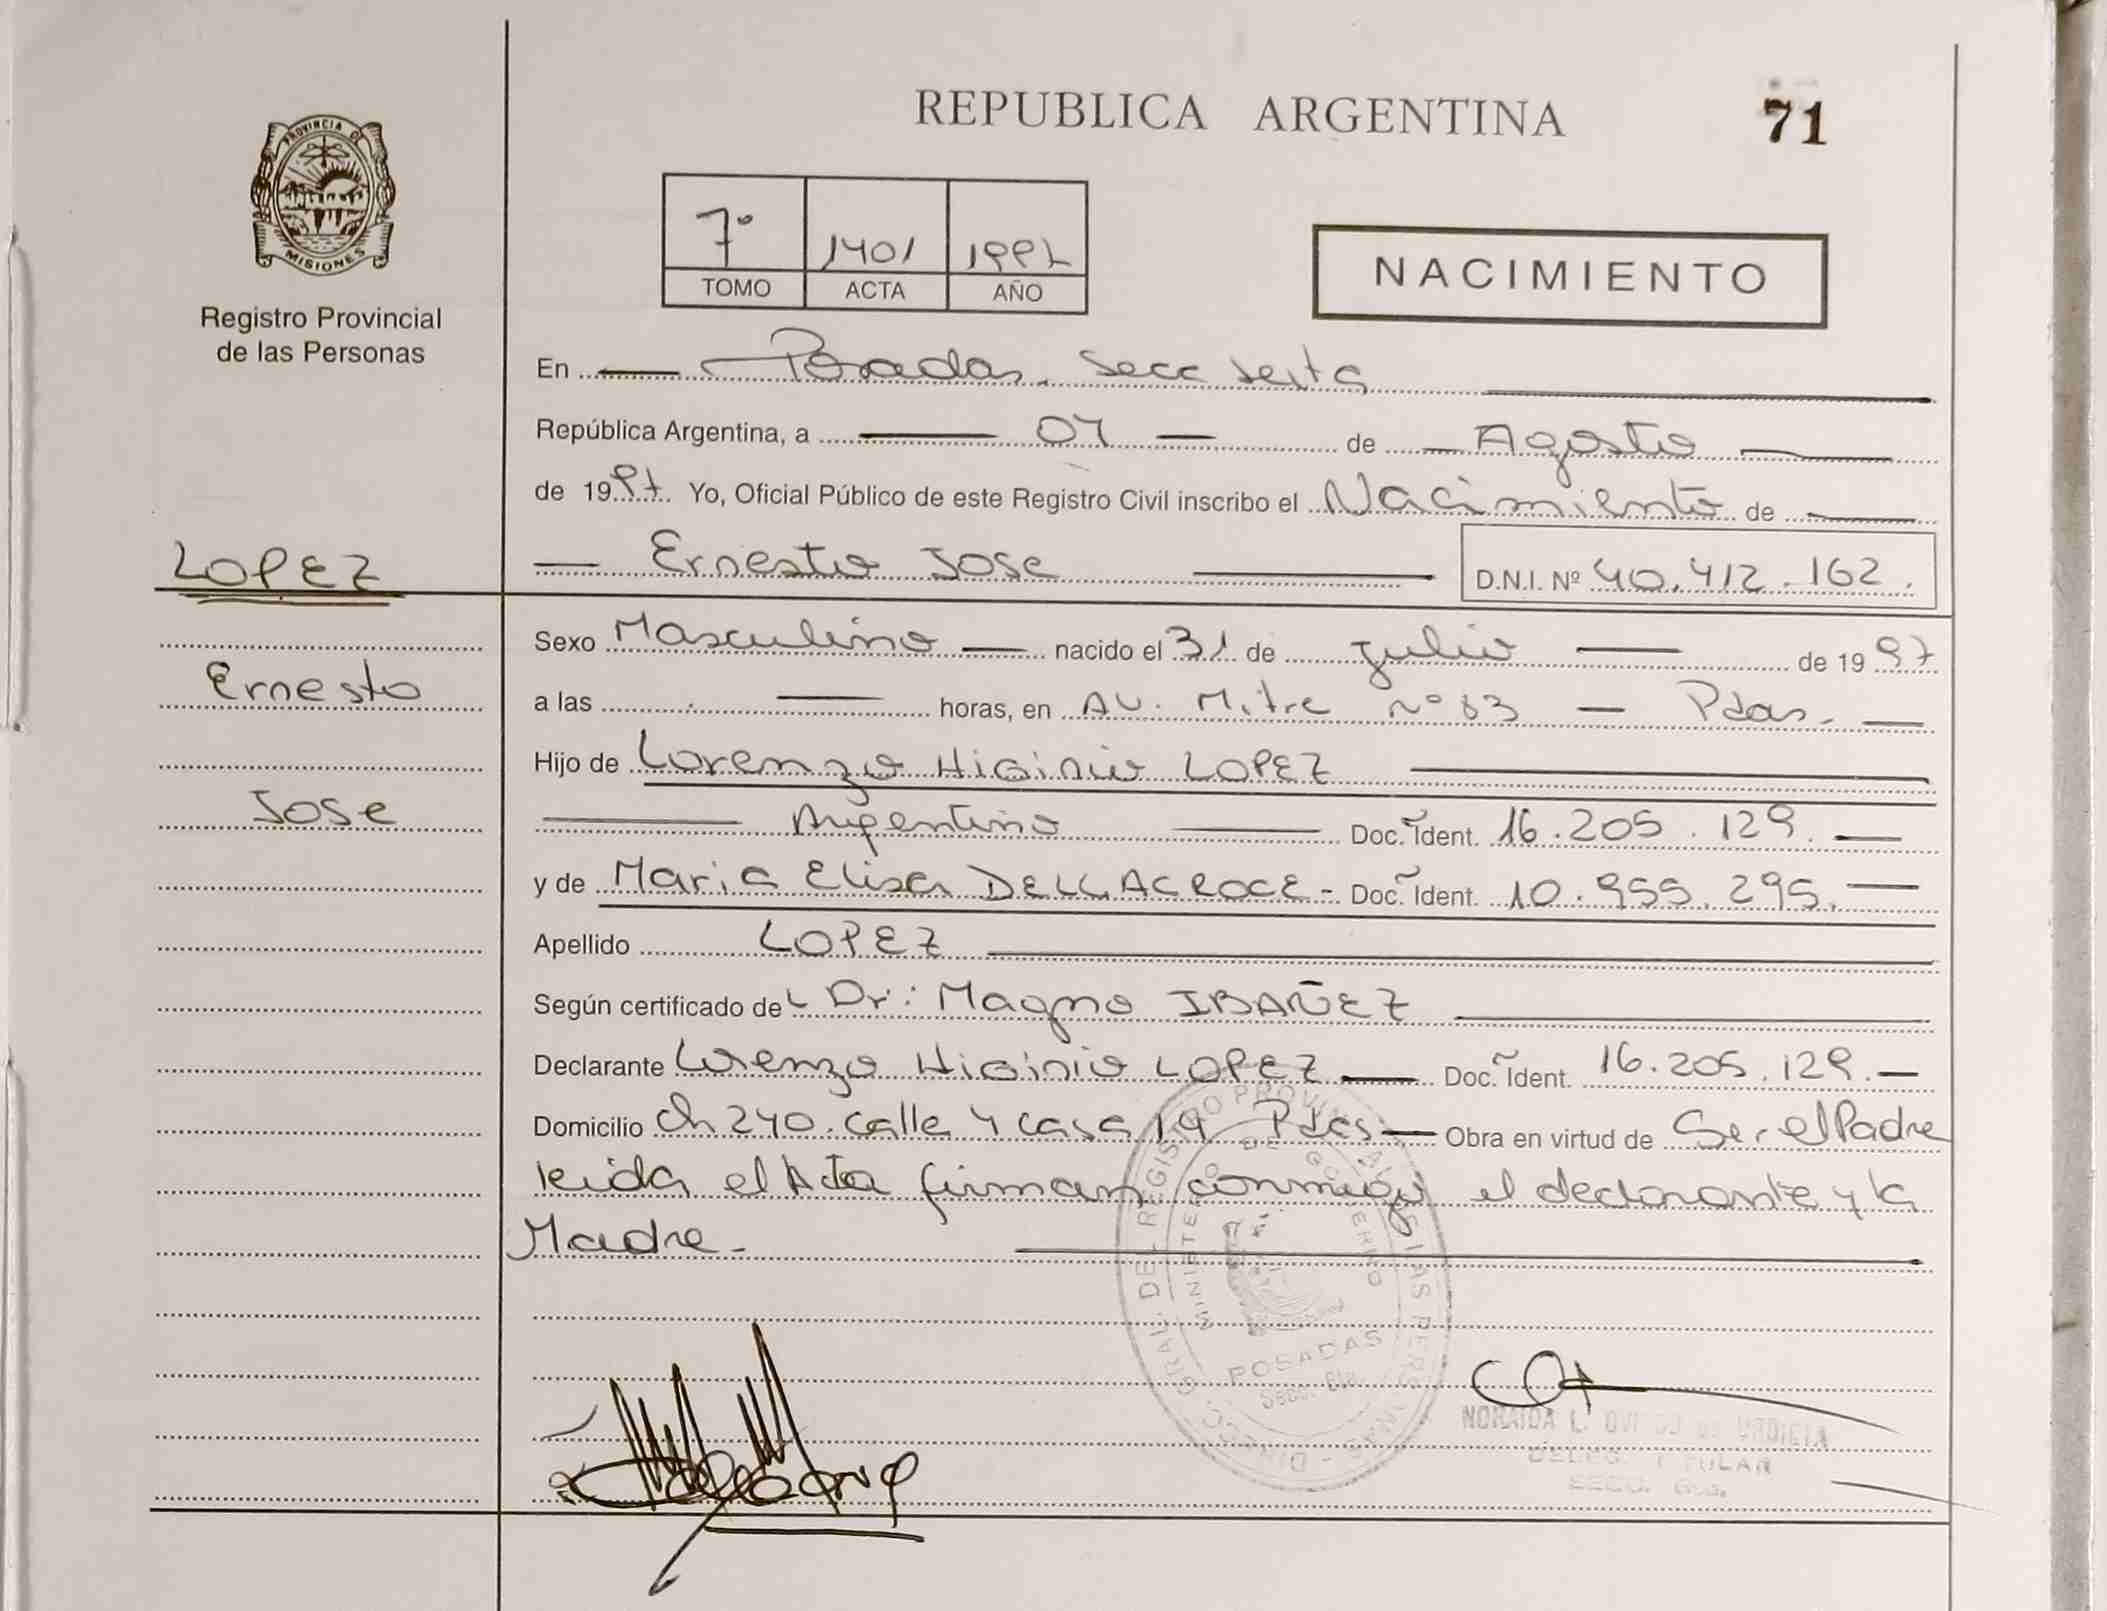 REPUBLICA ARGENTINA
71
PROVINCIA DE
MISIONES
Registro Provincial
de las Personas
7º 1401 1997
TOMO ACTA AÑO
NACIMIENTO
En Posadas, Secc Sexta
República Argentina, a 04 de Agosto
de 1997 Yo, Oficial Público de este Registro Civil inscribo el Nacimiento de
LOPEZ
Ernesto Jose D.N.I. Nº 40.412.162.
Sexo Masculino nacido el 31 de Julio de 1997
Ernesto
a las horas, en Av. Mitre nº 63 Pdas.
Hijo de Lorenzo Higinio LOPEZ
Jose
Argentino Doc. Ident. 16.205.129.
y de Maria Elisa DELLACROCE - Doc. Ident. 10.955.295.
Apellido LOPEZ
Según certificado del Dr: Magno IBAÑEZ
Declarante Lorenzo Higinio LOPEZ Doc. Ident. 16.205.129.
Domicilio Ch 240. Calle 4 casa 19 Pdas Obra en virtud de Ser el Padre
leida el Acta firman conmigo el declarante y la
Madre -
DIRECC. GRAL. DEL REGISTRO PROVINCIAL DE LAS PERSONAS
MINISTERIO DE GOBIERNO
POSADAS
Secc. 6ta.
NORAIDA L.
DELEG. TITULAR
SECC. 6ta.